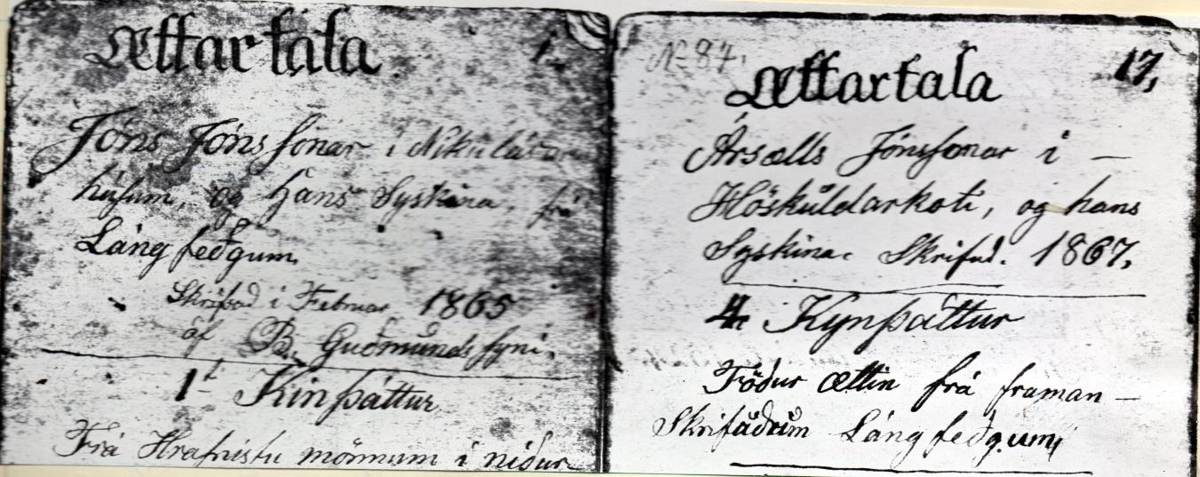 Ættartala
1.
Jóns Jónssonar í Nikulásar
húsum, og Hans Syskina, frá
Lángfeðgum.
Skrifað í Februar 1865
af B. Guðmundssyni.
1t Kinþáttur
Frá Hrafnistu mönnum í niður
No 87.
17,
Ættartala
Ársælls Jónssonar í –
Höskúldarkoti, og hans
Syskina. Skrifað. 1867,
4. Kynþáttur
Föður ættin frá framan –
Skrifúðúm Lángfeðgum,